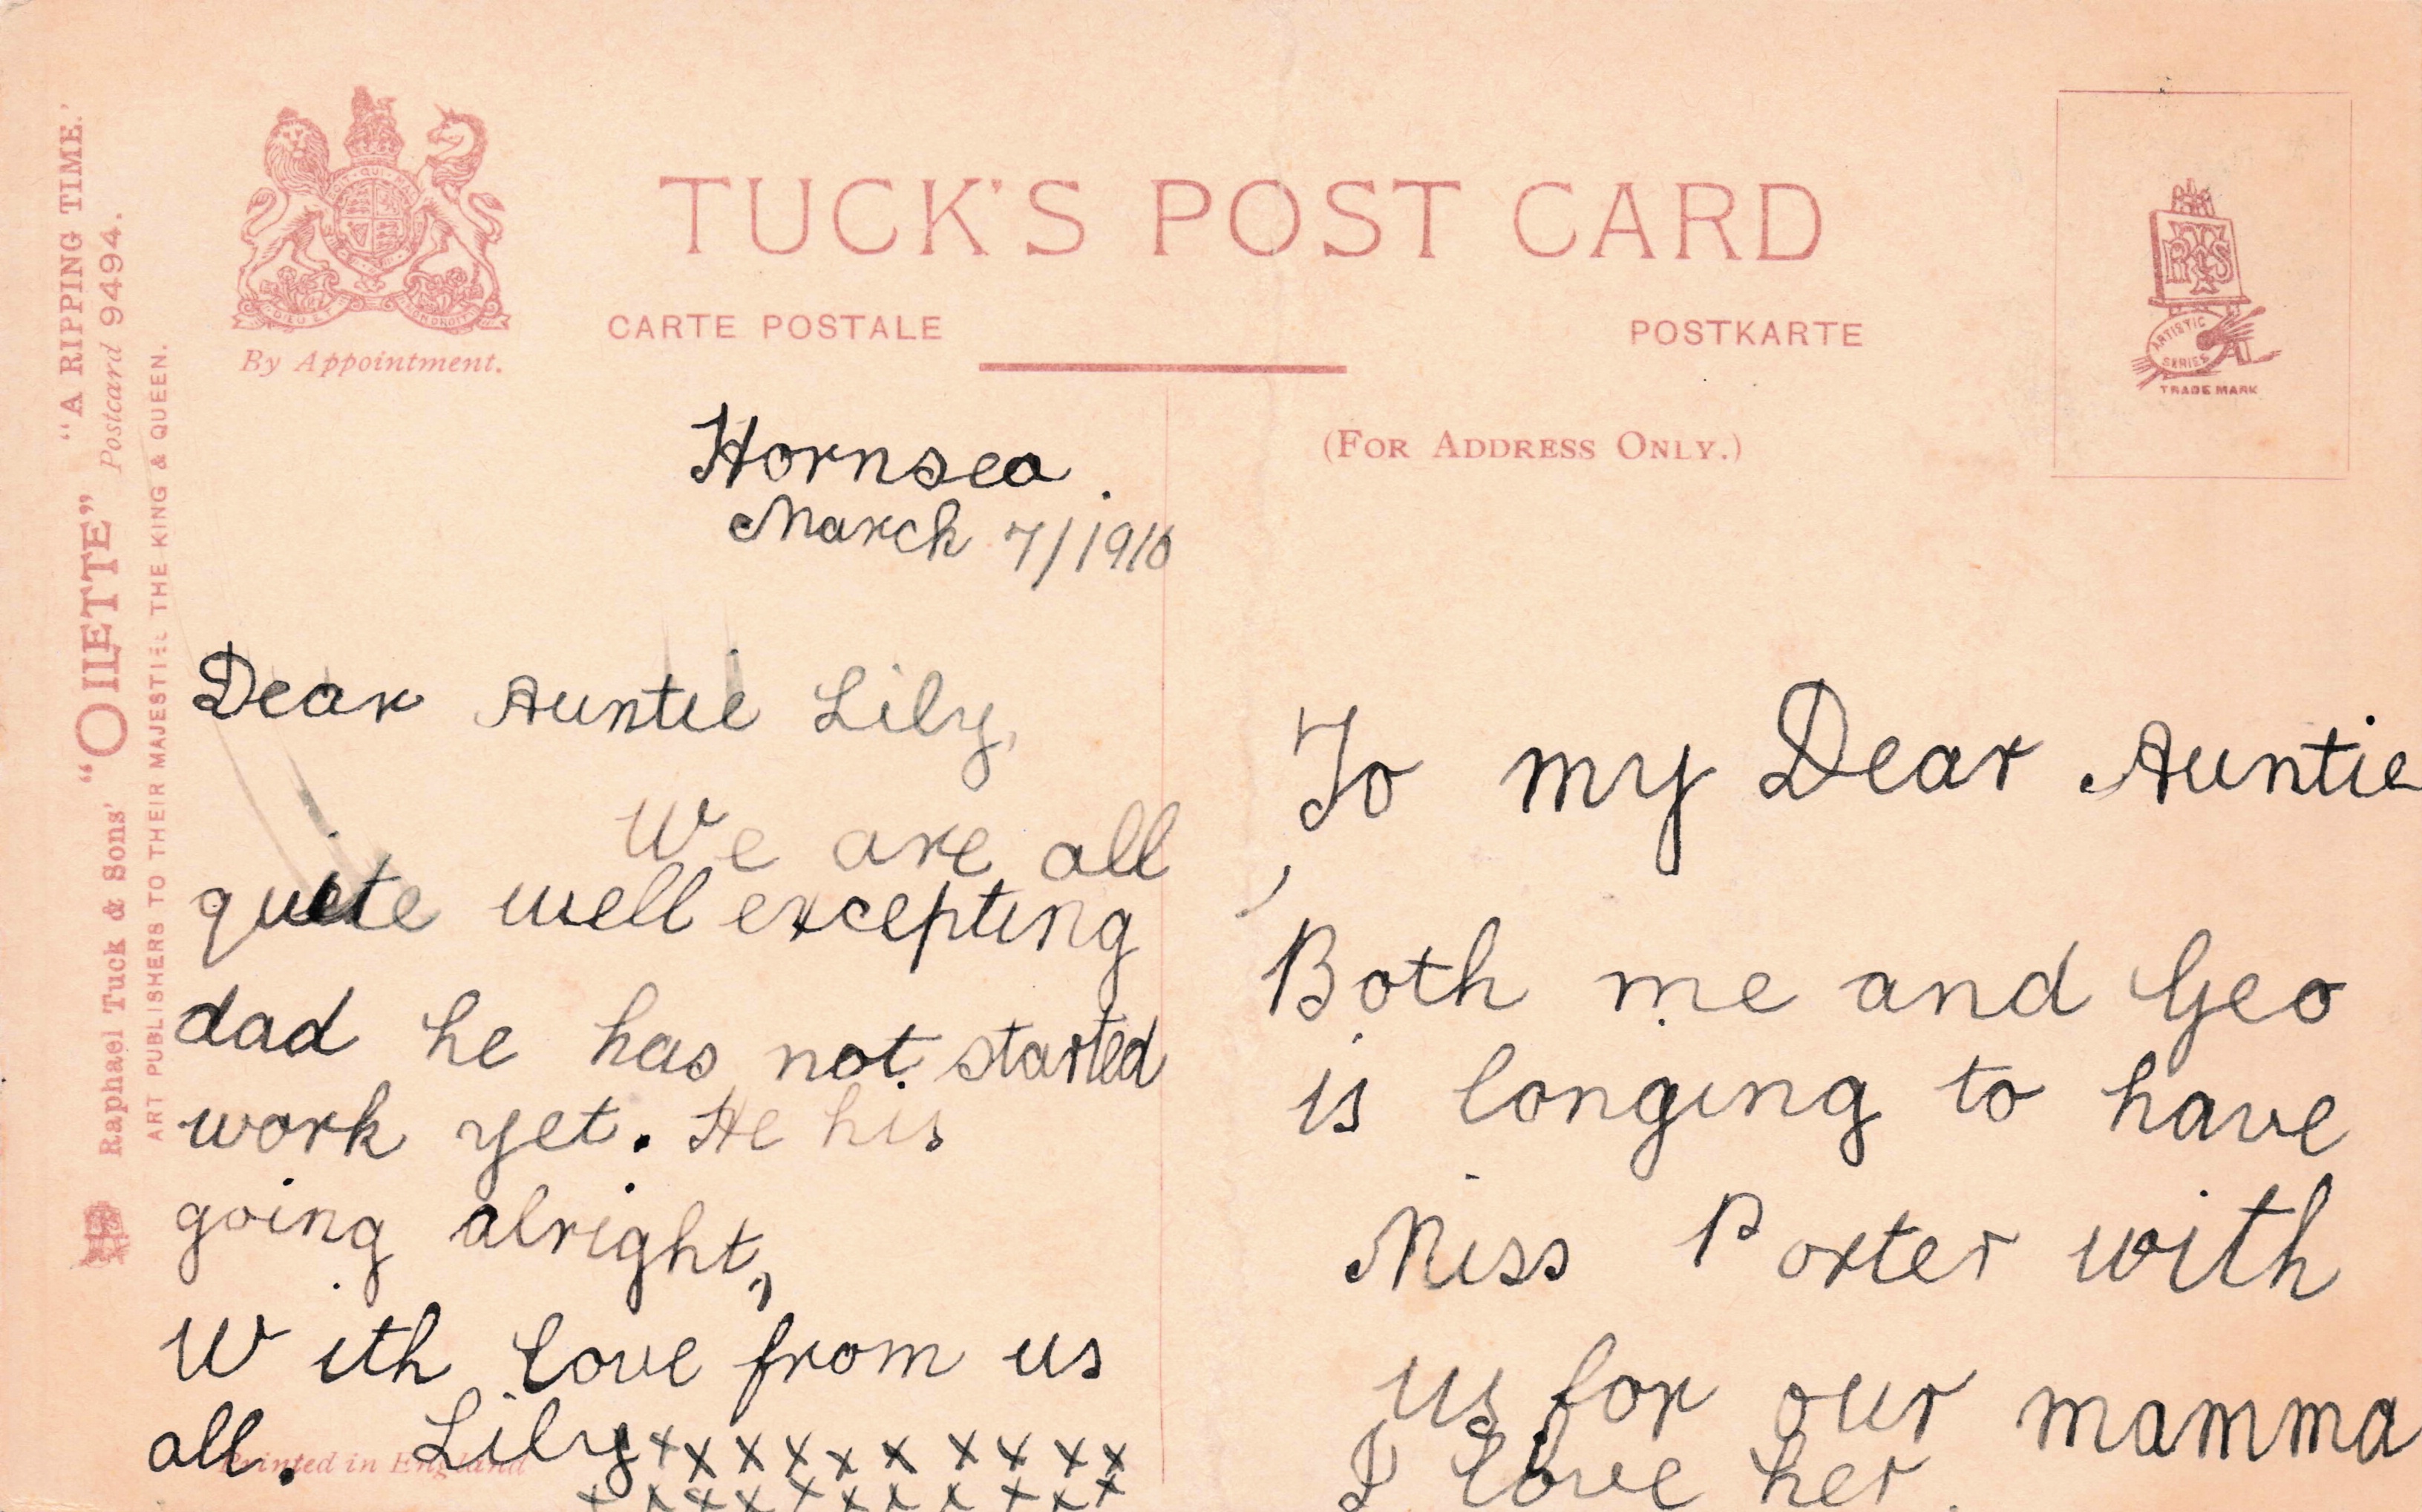 "A RIPPING TIME."
Raphael Tuck & Sons' "OILETTE" Postcard 9494.
ART PUBLISHERS TO THEIR MAJESTIES THE KING & QUEEN.
By Appointment.
TUCK'S POST CARD
CARTE POSTALE
POSTKARTE
(FOR ADDRESS ONLY.)
RTS
ARTISTIC
SERIES
TRADE MARK
Hornsea.
March 7/1910
Dear Auntie Lily,
We are all
quite well excepting
dad he has not started
work yet. He his
going alright,
With love from us
all. Lily x x x x x x x x x x
x x x x x x x x x x
Printed in England
To my Dear Auntie
Both me and Geo
is longing to have
Miss Porter with
us for our mamma
I love her.